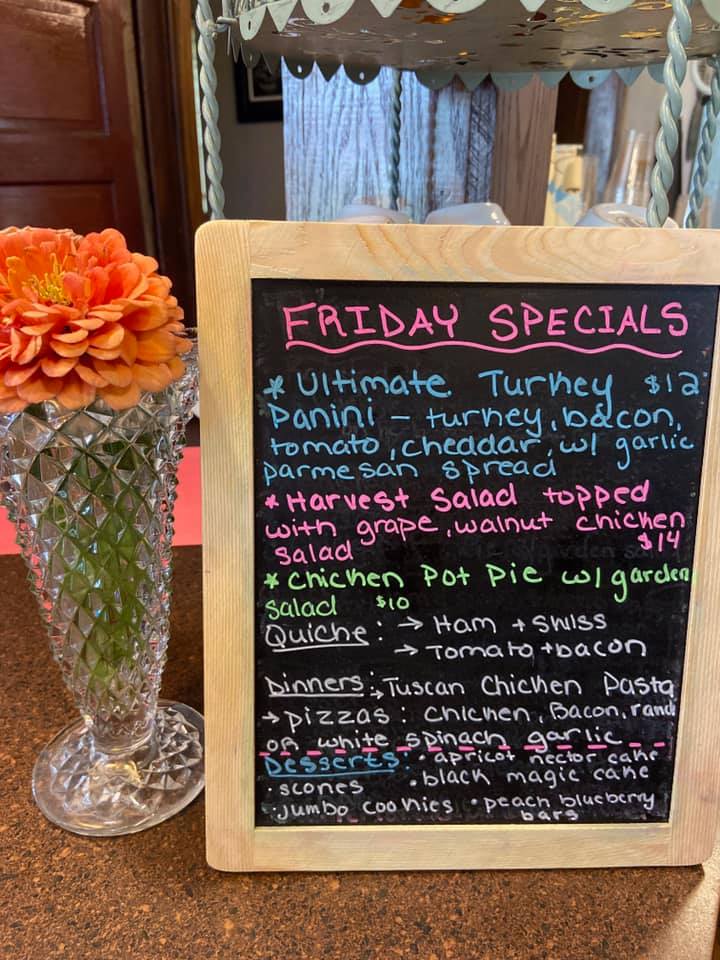 FRIDAY SPECIALS
* Ultimate Turkey $12
Panini - turkey, bacon,
tomato, cheddar, w/ garlic
parmesan spread
* Harvest Salad topped
with grape, walnut chicken
salad $14
* Chicken Pot Pie w/ garden
salad $10
Quiche: → Ham + Swiss
→ Tomato + bacon
Dinners: → Tuscan Chicken Pasta
→ Pizzas: Chicken, Bacon, ranch
or white spinach garlic
Desserts: • apricot nector cake
• scones • black magic cake
• jumbo cookies • peach blueberry
bars